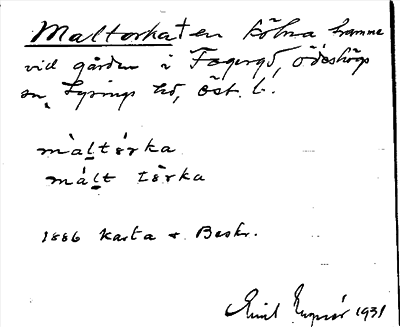 Maltorkan en Kölna hamne
vid gården i Fagergö, Ödeshögs
sn, Lysings hd, Öst. l.
màltórka
mált tòrka
1886 Karta & Beskr.
Emil 1931